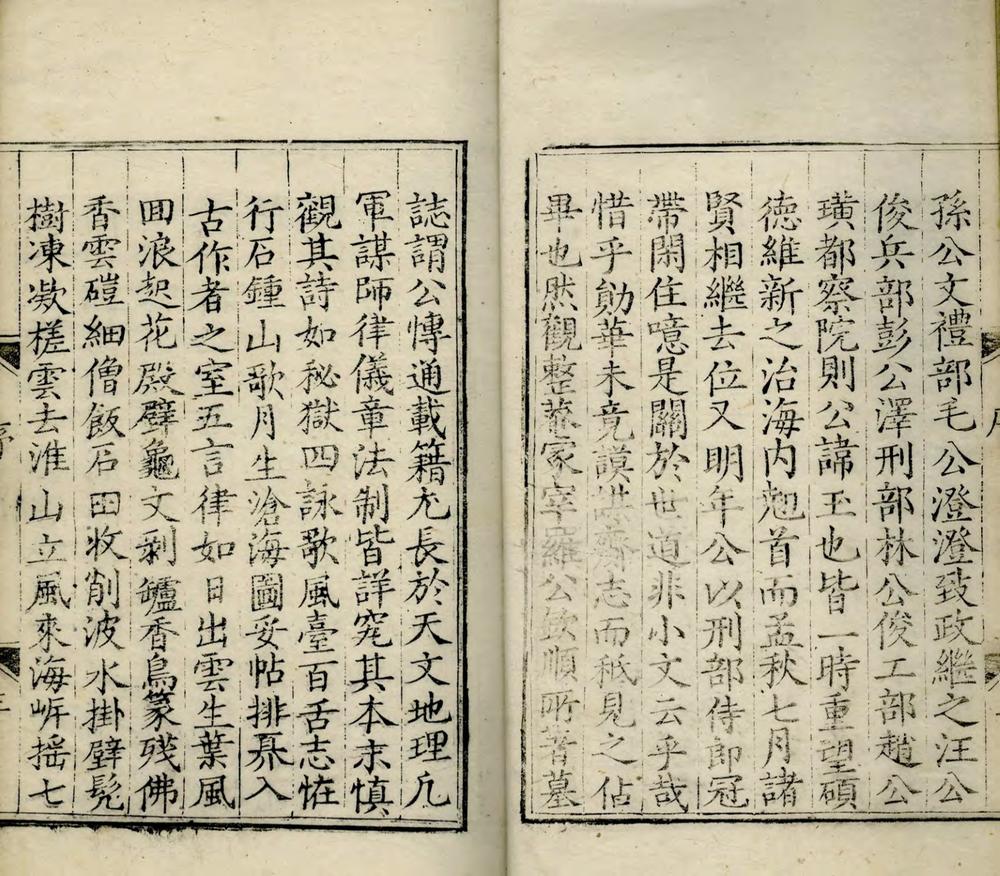 孫公文禮部毛公澄澄致政繼之汪公
俊兵部彭公澤刑部林公俊工部趙公
璜都察院則公諱玉也皆一時重望碩
德維新之治海内翘首而孟秋七月諸
賢相繼去位又明年公以刑部侍郎冠
帶閑住噫是關於世道非小文云乎哉
惜乎勛華未竟謨志而秖見之佔
畢也然觀整菴冢宰羅公欽順所著墓
誌謂公慱通載籍尤長於天文地理凡
軍謀師律儀章法制皆詳究其本末慎
觀其詩如秘獄四詠歌風臺百舌志恠
行石鍾山歌月生滄海圖妥帖排奡入
古作者之室五言律如日出雲生葉風
囬浪起花殿壁龜文剥鑪香鳥篆殘佛
香雲磑細僧飯石田收削波水掛壁髡
樹凍歕槎雲去淮山立風來海岍摇七
序
三